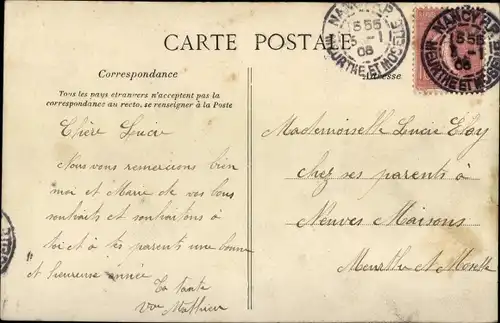 NANCY
15 55
5 - 1
08
MEURTHE ET MOSELLE
NANCY
15 55
5 - 1
08
MEURTHE ET MOSELLE
CARTE POSTALE
Correspondance
Adresse
Tous les pays étrangers n'acceptent pas la
correspondance au recto, se renseigner à la Poste
Chère Lucie
Nous vous remercions bien
moi et Marie de vos bons
souhaits et souhaitons à
toi et à tes parents une bonne
et heureuse année
Ta tante
Vve Mathieu
Mademoiselle Lucie Eloy
chez ses parents à
Neuves Maisons
Meurthe et Moselle